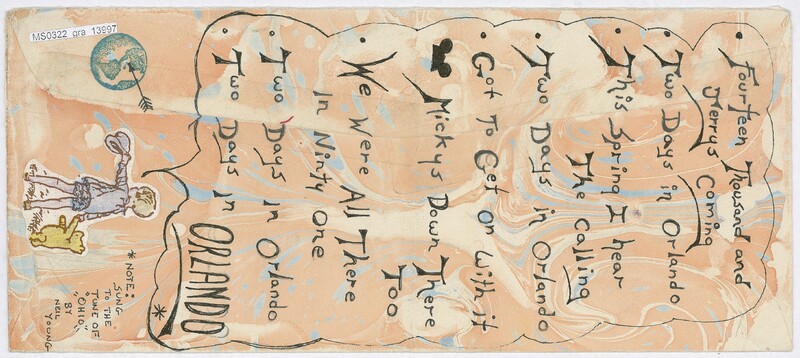 MS0322_gra_13997
• Fourteen Thousand and
Jerrys Coming
• Two Days in Orlando
• This Spring I hear
The Calling
• Two Days in Orlando
• Got To Get On With it
Mickys Down There
Too
• We Were All There
In Ninty One
• Two Days In Orlando
• Two Days In
ORLANDO
*
* NOTE:
SUNG
TO THE
TUNE OF
"OHIO"
BY
NEIL
YOUNG